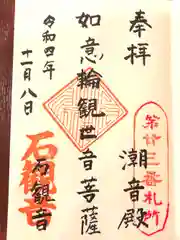 奉拝
潮音殿
第廿三番札所
如意輪観世音菩薩
令和四年
十一月八日
石觀音
石観音